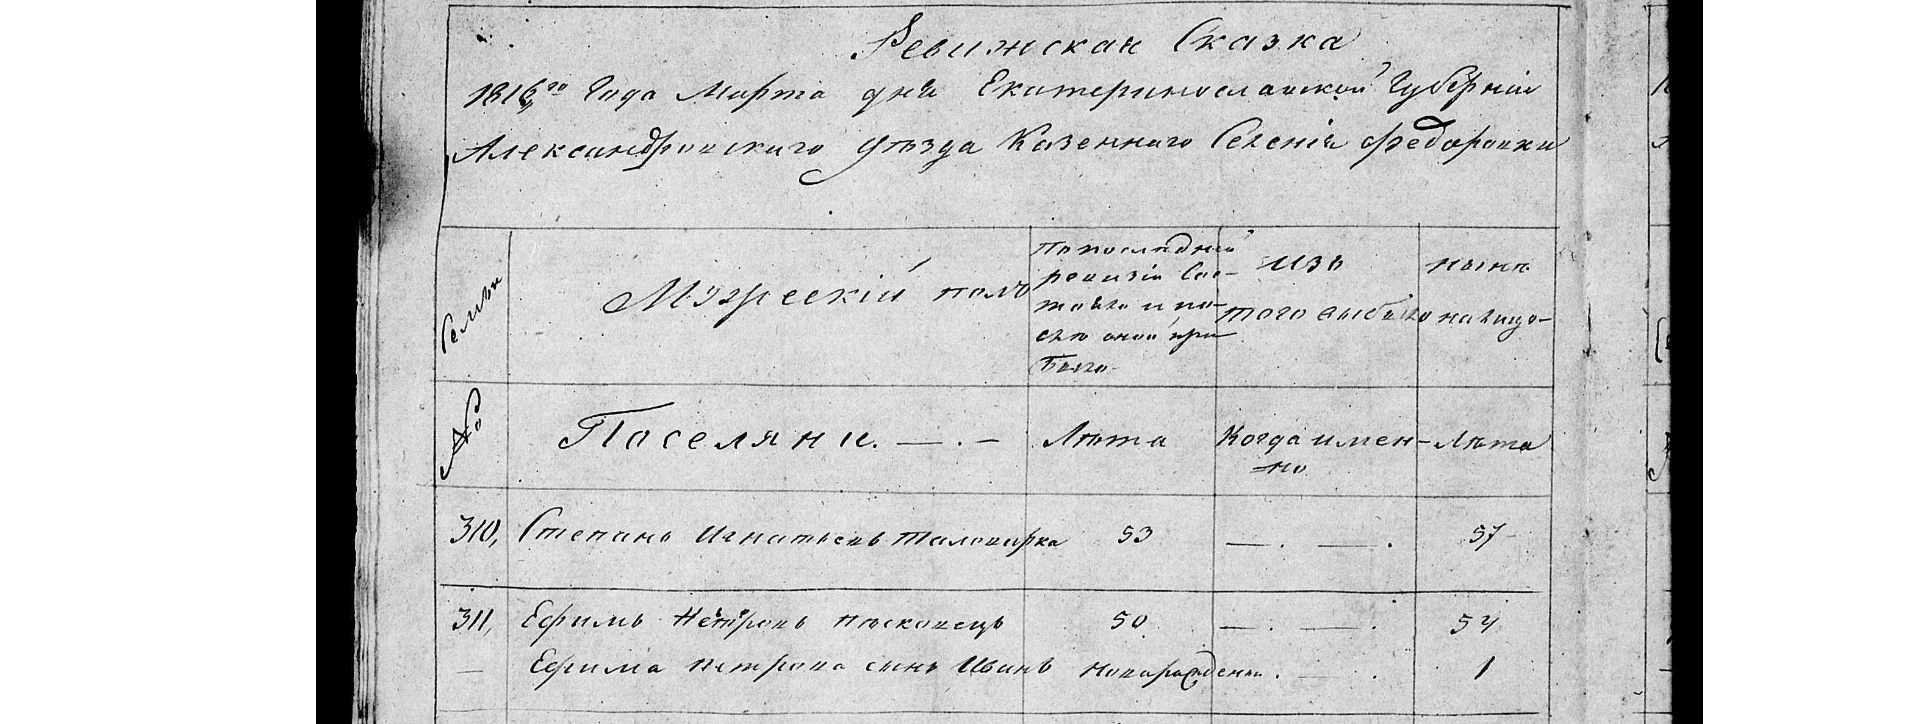 Ревижская Сказка
1816го Года Марта дня Екатеринославской Губернии
Александровскаго уѣзда Казеннаго Селенія Федоровки
Семьи
Мужескій полъ
По последней
ревизіи Сос-
тояло и по-
слѣ оной при
было
изъ
того выбыло
нынѣ
налицо-
№
Поселяни.
Лѣта
Когда имен-
но
Лѣта
310, Степанъ Игнатьевъ 53 57
311, Ефимъ Петровъ Песковецъ 50 54
Ефима Петрова сынъ Иванъ новорожденъ 1